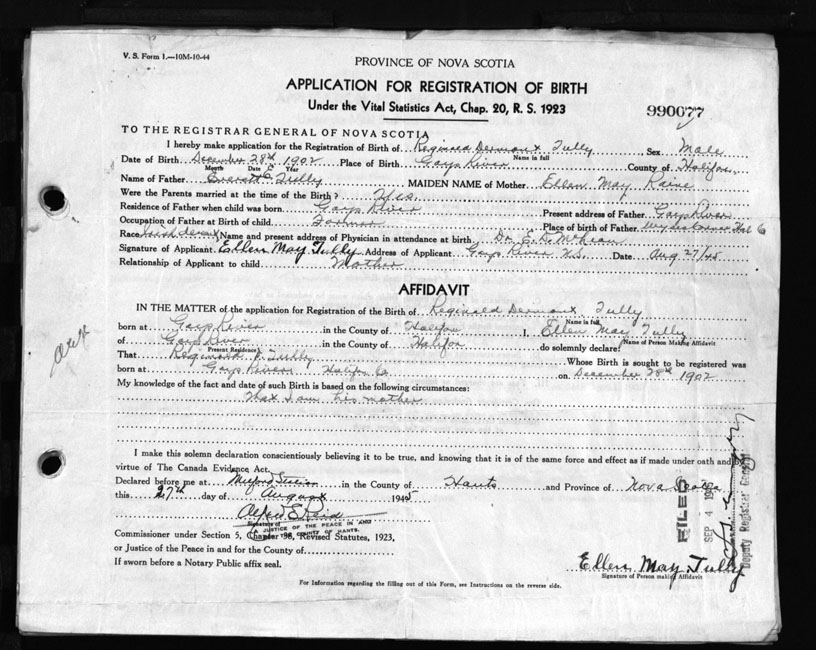 V. S. Form 1.—10M-10-44
PROVINCE OF NOVA SCOTIA
APPLICATION FOR REGISTRATION OF BIRTH
Under the Vital Statistics Act, Chap. 20, R. S. 1923
990677
TO THE REGISTRAR GENERAL OF NOVA SCOTIA
I hereby make application for the Registration of Birth of Reginald Dermoux Tully Sex Male
Name in full
Date of Birth December 28th 1902 Place of Birth Gays River County of Halifax
Month Date Year
Name of Father Everett C Tully MAIDEN NAME of Mother Ellen May
Were the Parents married at the time of the Birth? Yes
Residence of Father when child was born Gays River Present address of Father Gays River
Occupation of Father at Birth of child Farmer Place of birth of Father
Race Name and present address of Physician in attendance at birth Dr. E. D. McLean
Signature of Applicant Ellen May Tully Address of Applicant Gays River N.S. Date Aug 27/45
Relationship of Applicant to child Mother
AFFIDAVIT
IN THE MATTER of the application for Registration of the Birth of Reginald Dermoux Tully
Name in full
born at Gays River in the County of Halifax I, Ellen May Tully
Name of Person Making Affidavit
of Gays River in the County of Halifax do solemnly declare:
Present Residence
That Reginald D. Tully Whose Birth is sought to be registered was
born at Gays River Halifax Co on December 28th 1902
My knowledge of the fact and date of such Birth is based on the following circumstances:
That I am his mother
I make this solemn declaration conscientiously believing it to be true, and knowing that it is of the same force and effect as if made under oath and by
virtue of The Canada Evidence Act.
Declared before me at Milford Station in the County of Hants and Province of Nova Scotia
this 27th day of August 1945
Alfred E Reid
Signature of
A JUSTICE OF THE PEACE IN AND
FOR THE COUNTY OF HANTS.
Commissioner under Section 5, Chapter 38, Revised Statutes, 1923,
or Justice of the Peace in and for the County of
If sworn before a Notary Public affix seal.
FILED
SEP 4 194
Deputy Registrar General
Ellen May Tully
Signature of Person making Affidavit
For Information regarding the filling out of this Form, see Instructions on the reverse side.